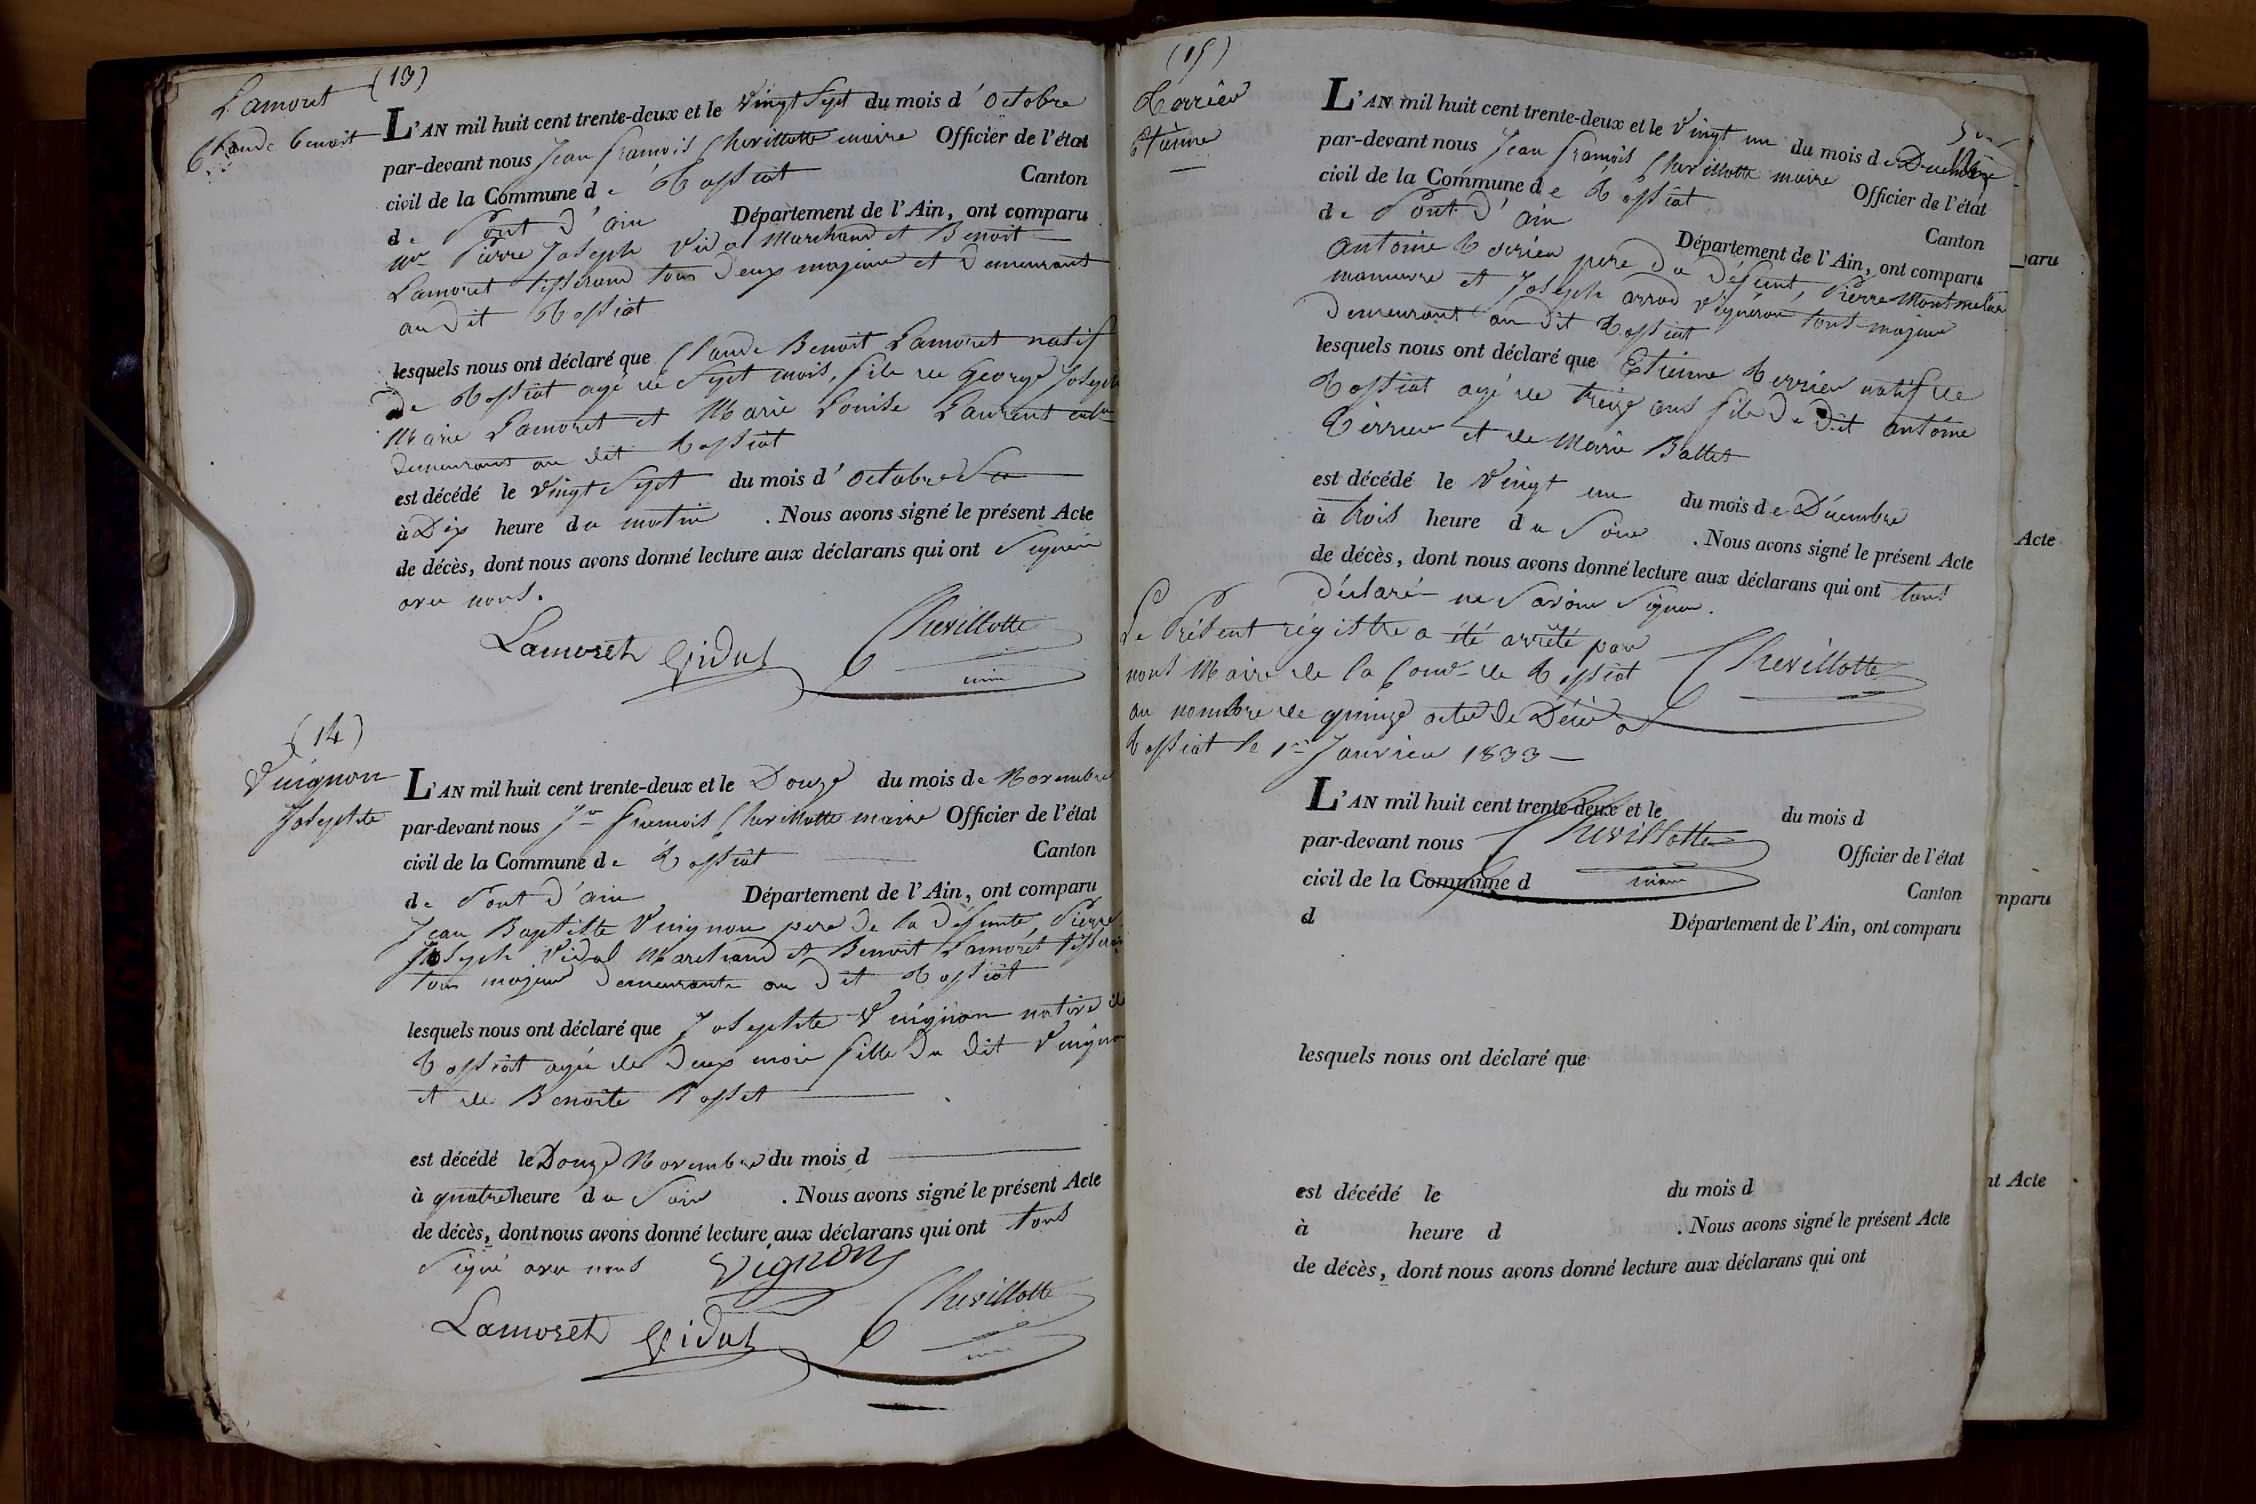 (13)
Lamoret
Claude benoit
L'AN mil huit cent trente-deux et le vingt Sept du mois d'octobre
par-devant nous Jean françois Chevillotte maire Officier de l'état
civil de la Commune de Rossiat Canton
de Pont d'ain Département de l'Ain, ont comparu
Mr Pierre Joseph Vidal Marchand et Benoit
Lamoret tisserand tous deux majeur et demeurant
au dit Rossiat
lesquels nous ont déclaré que Claude Benoit Lamoret natif
de Rossiat agé de Sept mois, fils de george Joseph
Marie Lamoret et Marie Louise Laurent
demeurant au dit Rossiat
est décédé le vingt Sept du mois d'octobre
à Dix heure du matin . Nous avons signé le présent Acte
de décès, dont nous avons donné lecture aux déclarans qui ont Signé
avec nous.
Lamoret Vidal Chevillotte
maire
(14)
Vuignon
Josephte
L'AN mil huit cent trente-deux et le Douze du mois de Novembre
par-devant nous Jn françois Chevillotte maire Officier de l'état
civil de la Commune de Rossiat Canton
de Pont d'ain Département de l'Ain, ont comparu
Jean Baptiste Vuignon pere de la défunte, Pierre
Joseph Vidal Marchand et Benoit Lamoret
tous majeur demeurants au dit Rossiat
lesquels nous ont déclaré que Josephte Vuignon native de
Rossiat agée de deux mois fille du dit Vuignon
et de Benoite Rosset
est décédé le Douze Novembre du mois d
à quatre heure du Soir . Nous avons signé le présent Acte
de décès, dont nous avons donné lecture aux déclarans qui ont tous
Signé avec nous Vignon
Lamoret Vidal Chevillotte
maire
(15)
Etienne
L'AN mil huit cent trente-deux et le vingt un du mois de Décembre
par-devant nous Jean françois Chevillotte maire Officier de l'état
civil de la Commune de Rossiat Canton
de Pont d'ain Département de l'Ain, ont comparu
antoine pere du défunt, Pierre
manuvre et Joseph vigneron tous majeur
demeurant au dit Rossiat
lesquels nous ont déclaré que Etienne natif de
Rossiat agé de treize ans fils du dit antoine
et de Marie Ballet
est décédé le vingt un du mois de Décembre
à trois heure du Soir . Nous avons signé le présent Acte
de décès, dont nous avons donné lecture aux déclarans qui ont tous
déclaré ne Savoir Signer.
Le Présent régistre a été arrêté par
nous Maire de la Comne de Rossiat
au nombre de quinze actes de Décès a
Rossiat le 1er Janvier 1833
Chevillotte
L'AN mil huit cent trente-deux et le du mois d
par-devant nous Chevillotte Officier de l'état
civil de la Commune d maire Canton
d Département de l'Ain, ont comparu
lesquels nous ont déclaré que
est décédé le du mois d
à heure d . Nous avons signé le présent Acte
de décès, dont nous avons donné lecture aux déclarans qui ont
paru
Acte
mparu
nt Acte